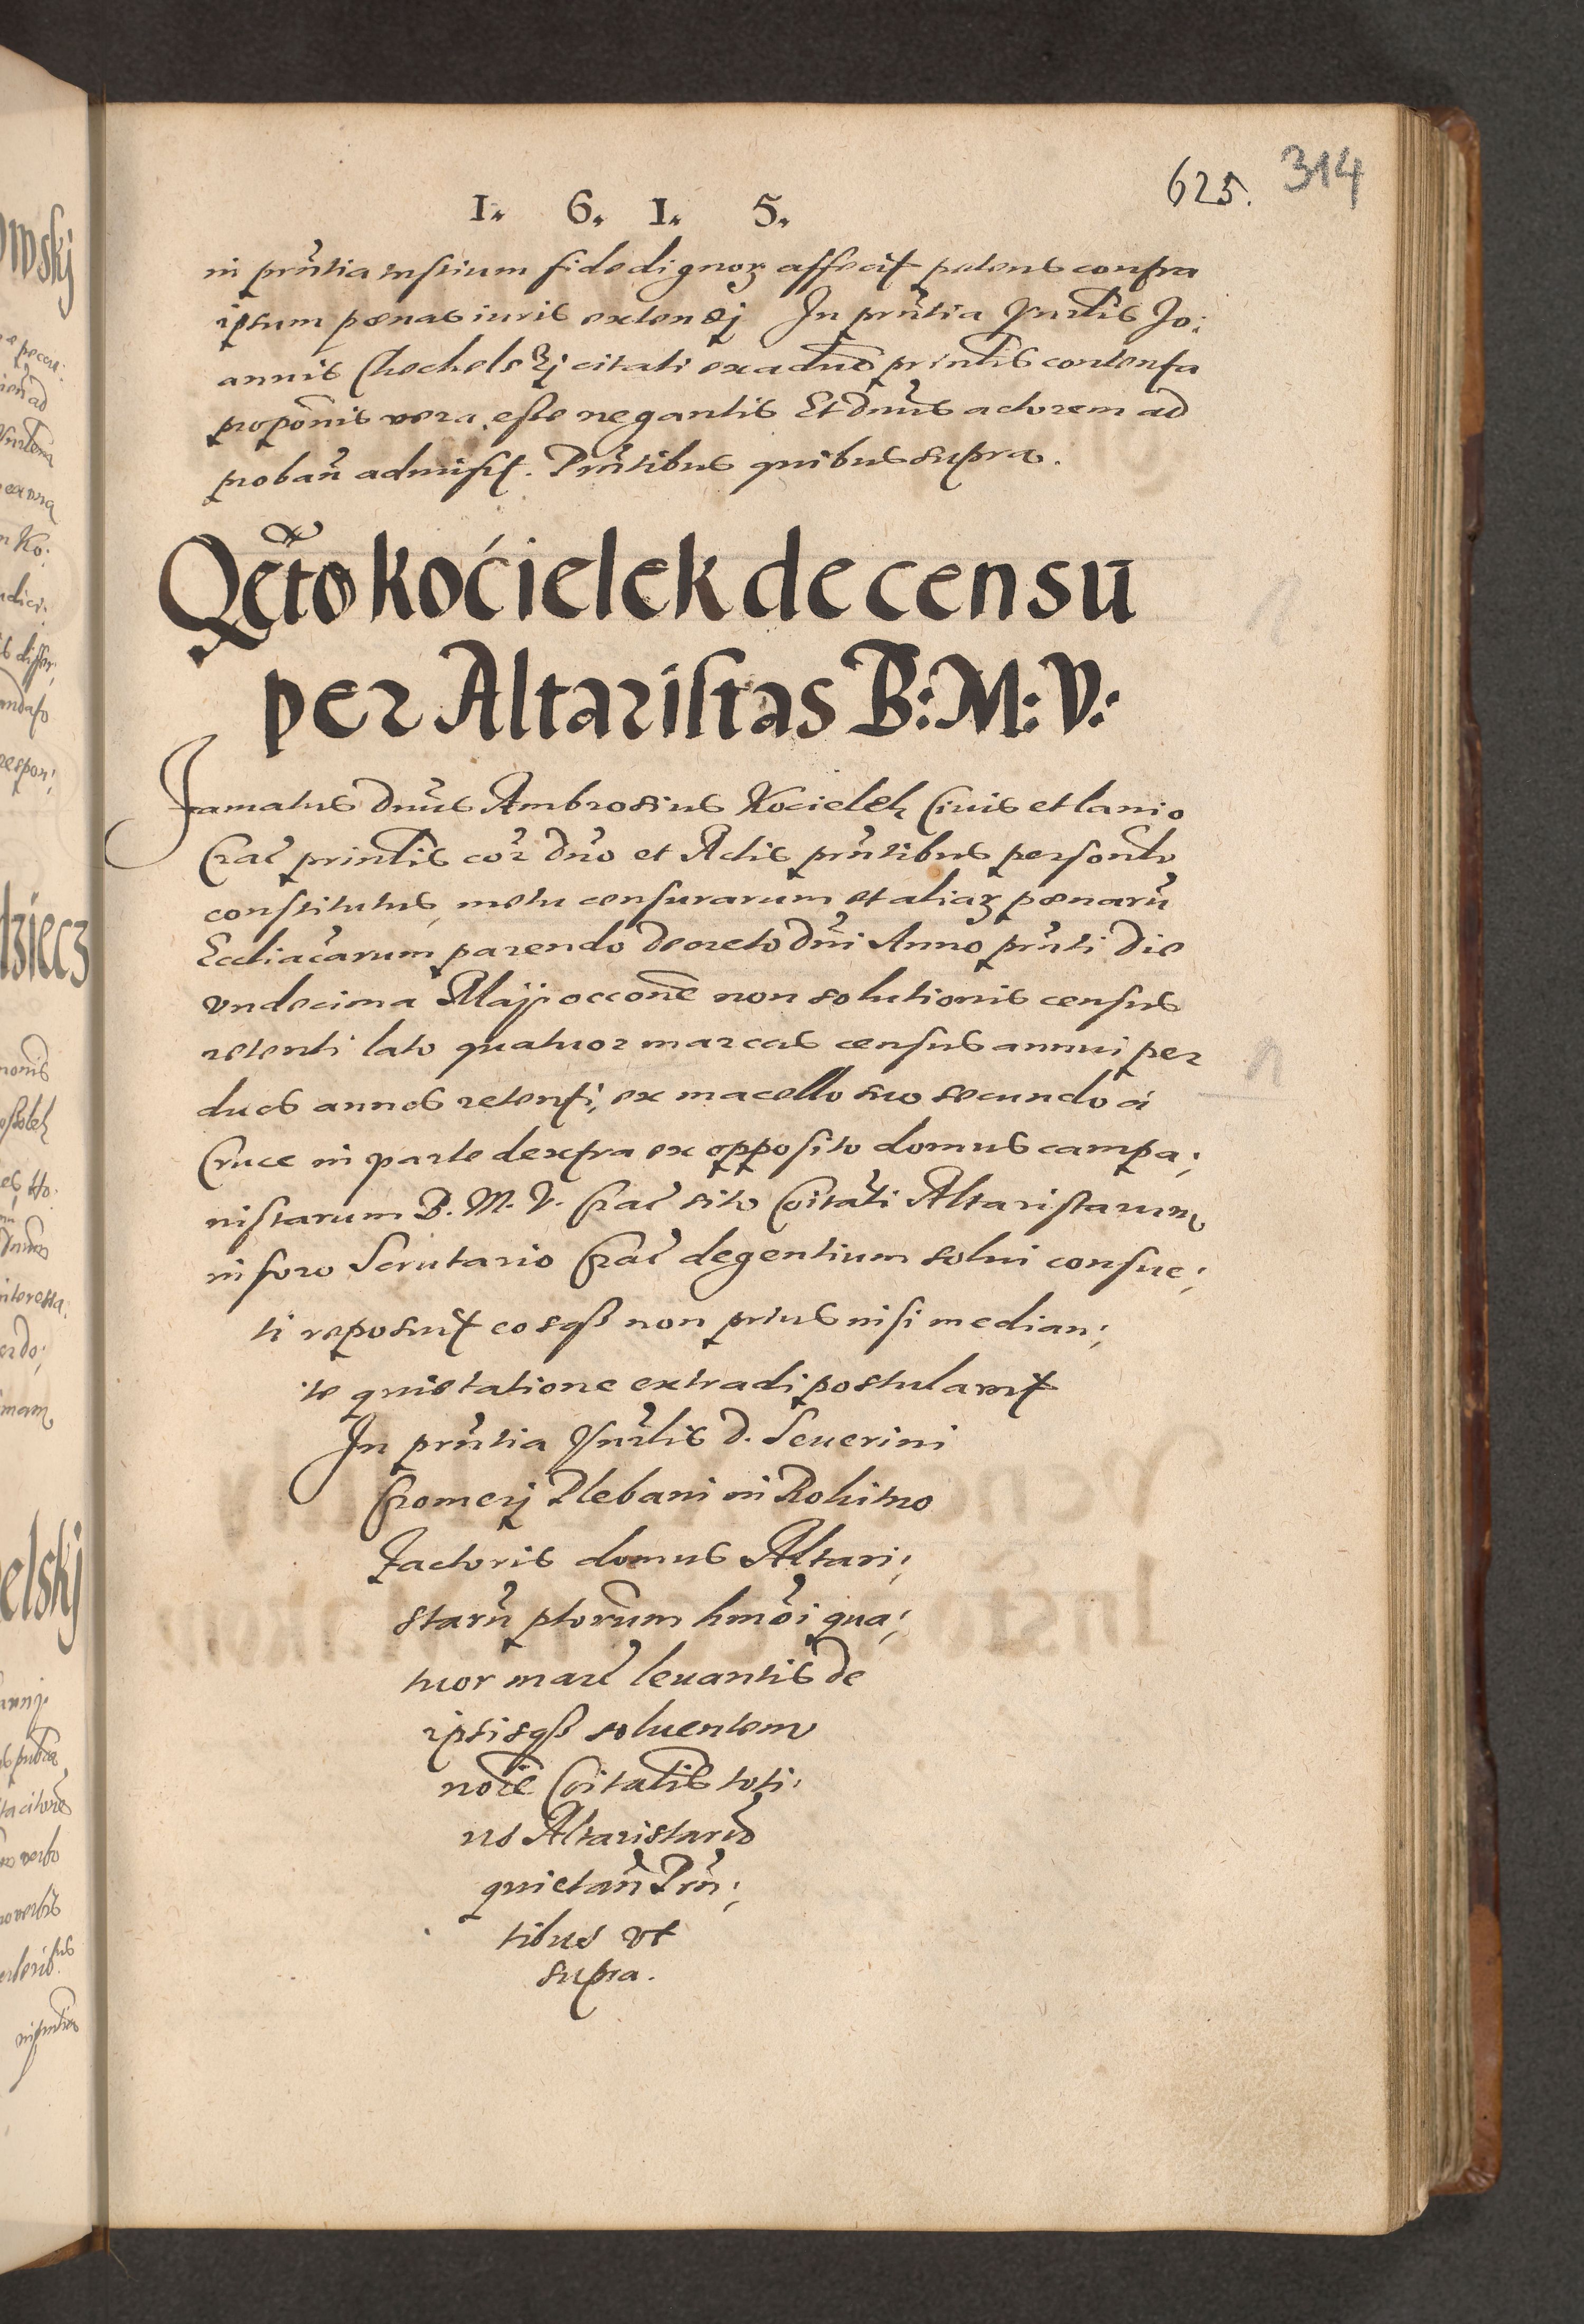 625. 314
1. 6. 1. 5.
in prñtia testium fidedignoꝝ affecit petens contra
ipsum pœnas iuris extendj In prñtia Vnrlis Jo:
annis Chechelskj citati ex aduo principlis contenta
propõnis vera esse negantis Et Dnũs actorem ad
proban̄ admisit. Prñtibus quibus supra.
Qcto kocielek de censu
per Altaristas B: M: V:
Famatus Dnũs Ambrosius Kocielek Ciuis et lanio
Crac̄ principlis cor̄ Dno et Actis prñtibus personlr
constitutus, metu censurarum et aliaꝝ pœnarũ
Eccliacarum parendo decreto Dñi Anno prñti die
vndecima Maij occone non solutionis census
retenti lato quatuor marcas census annui per
duos annos retenti, ex macello suo secundo á
Cruce in parte dextra ex opposito domus campa:
nistarum B. M. V. Crac̄ sito Coitati Altaristarum
in foro Scrutario Crac̄ degentium solui consue:
ti reposuit eosqꝫ non prius nisi median:
te quietatione extradi postulauit
In prñtia Vnrlis D. Seuerini
Cromerj Plebani in Rokitno
Factoris domus Altari:
starũ ptorum hmõi qua:
tuor marc̄ leuantis de
iptisqꝫ soluentem
noĩe Coitatis toti:
us Altaristarũ
quietan̄ Prñ:
tibus vt
supra.